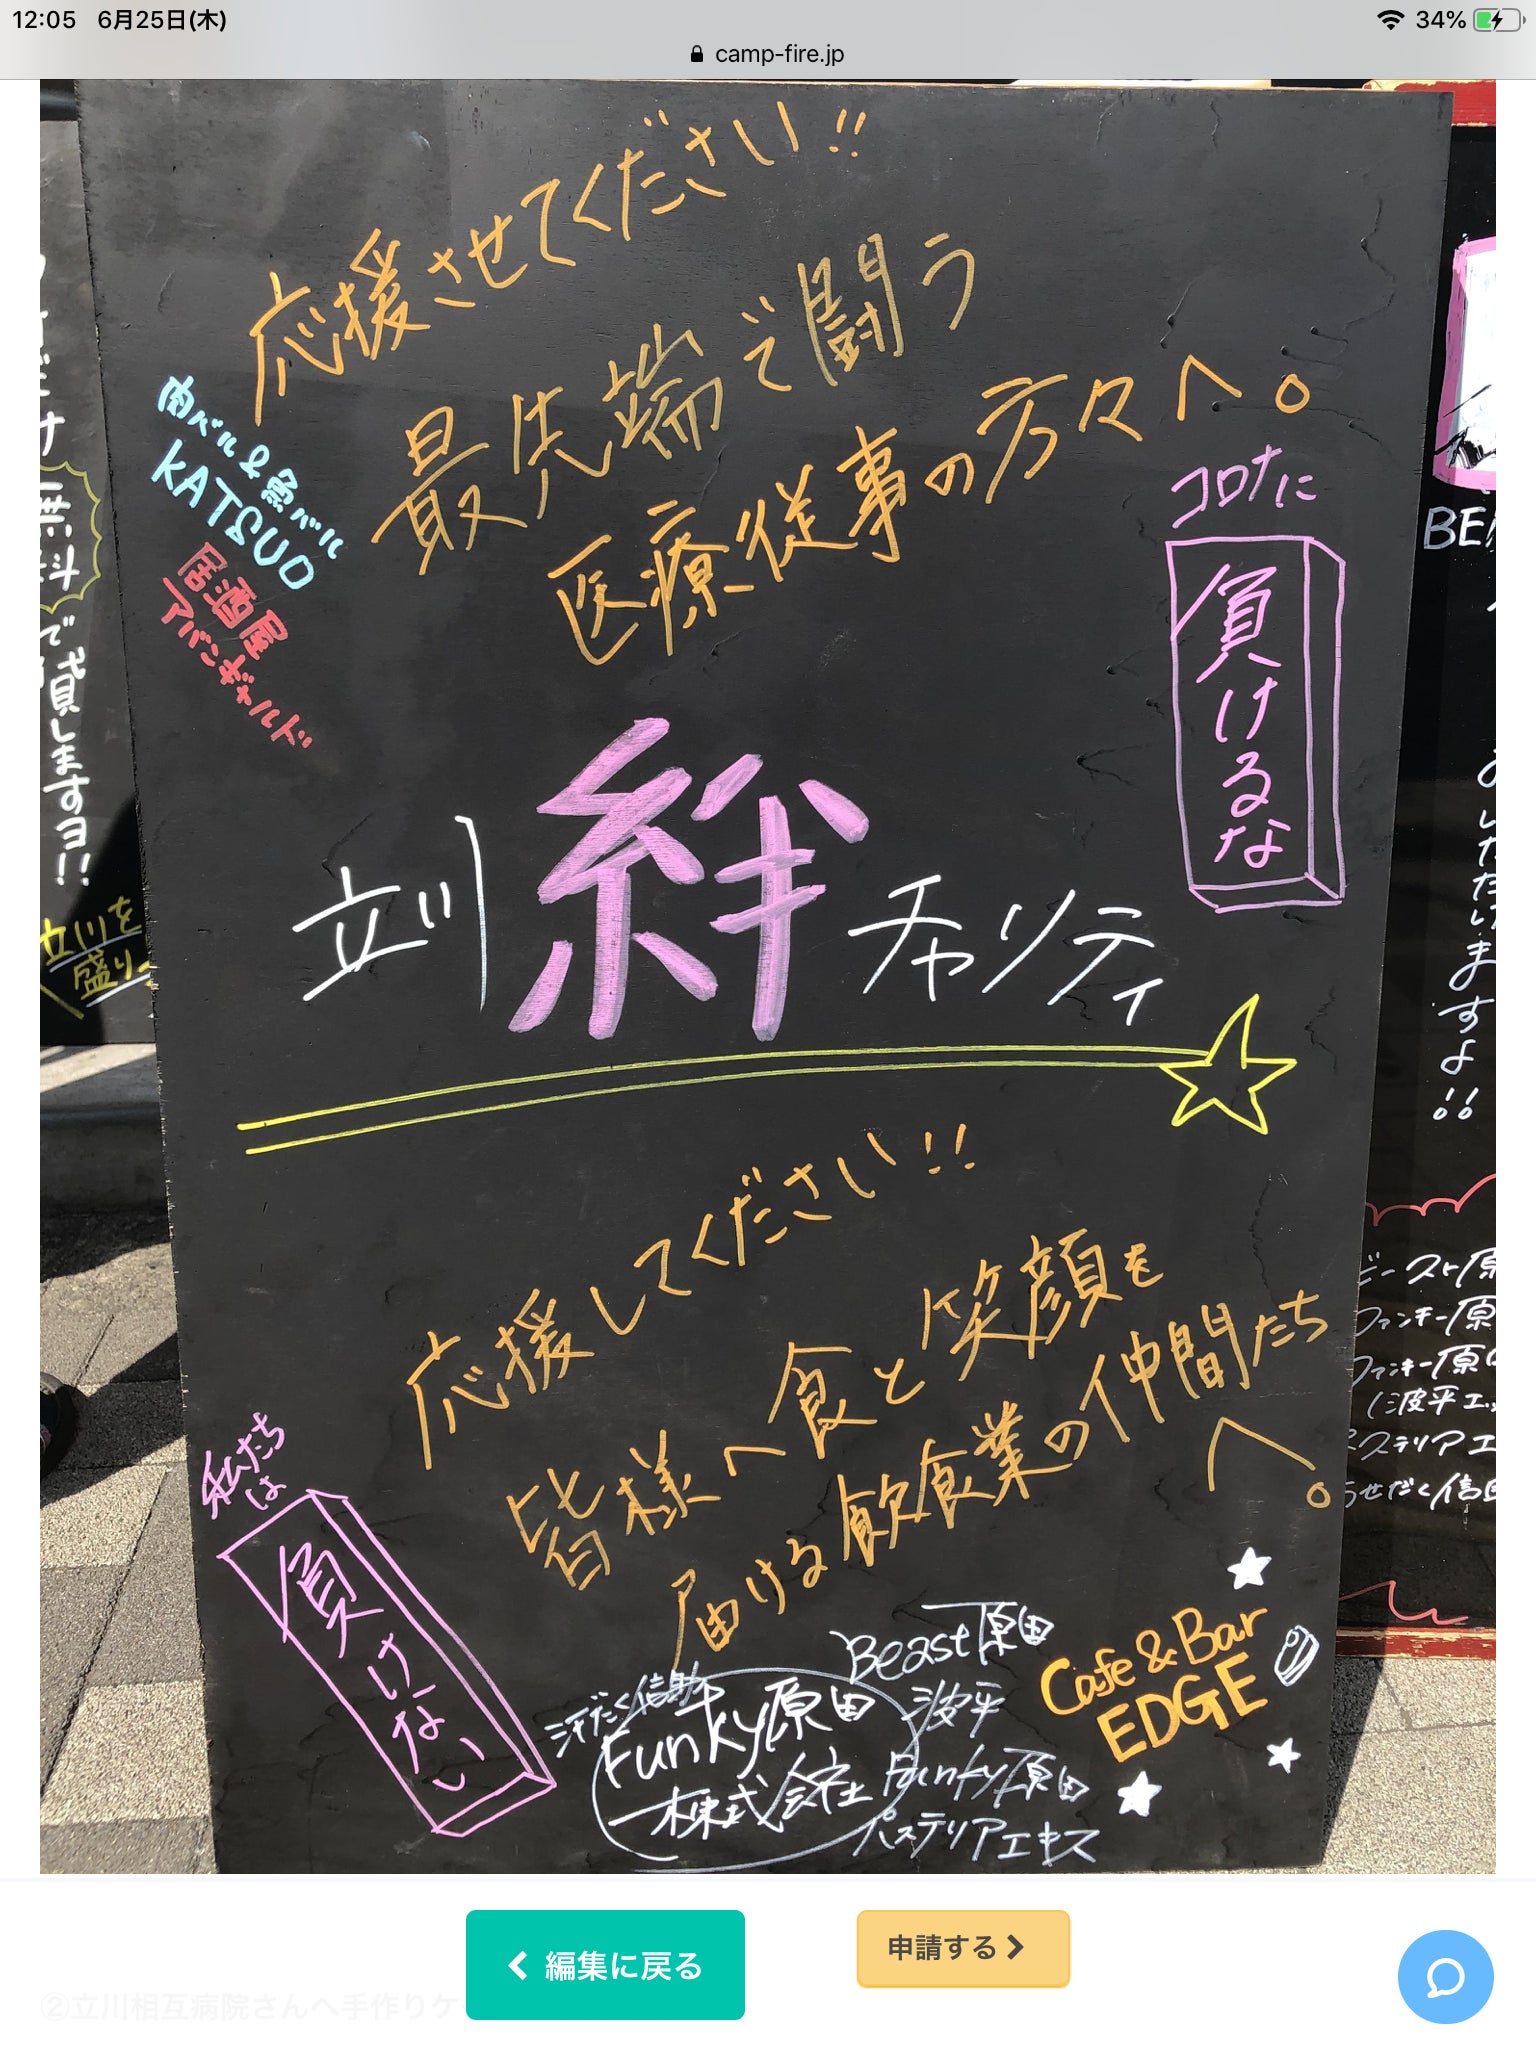 12:05 6月25日(木)
34%
camp-fire.jp
応援させてください!!
最先端で闘う
医療従事の方々へ。
肉バル&魚バル
KATSUO
居酒屋
アバンギャルド
コロナに
負けるな
立川絆チャリティ
応援してください!!
皆様へ食と笑顔を
届ける飲食業の仲間たち
へ。
私たち
は
負けない
汗だく信助
Funky原田
株式会社
Beast原田
波平
Funky原田
パステリアエキス
Cafe & Bar
EDGE
無料で貸しますヨ!!
立川を
盛り
BE
いただいますよ!!
ビースト原
ファンキー原
ファンキー原田
(波平エ
ステリアエ
せだく信
編集に戻る
申請する
②立川相互病院さんへ手作りケ